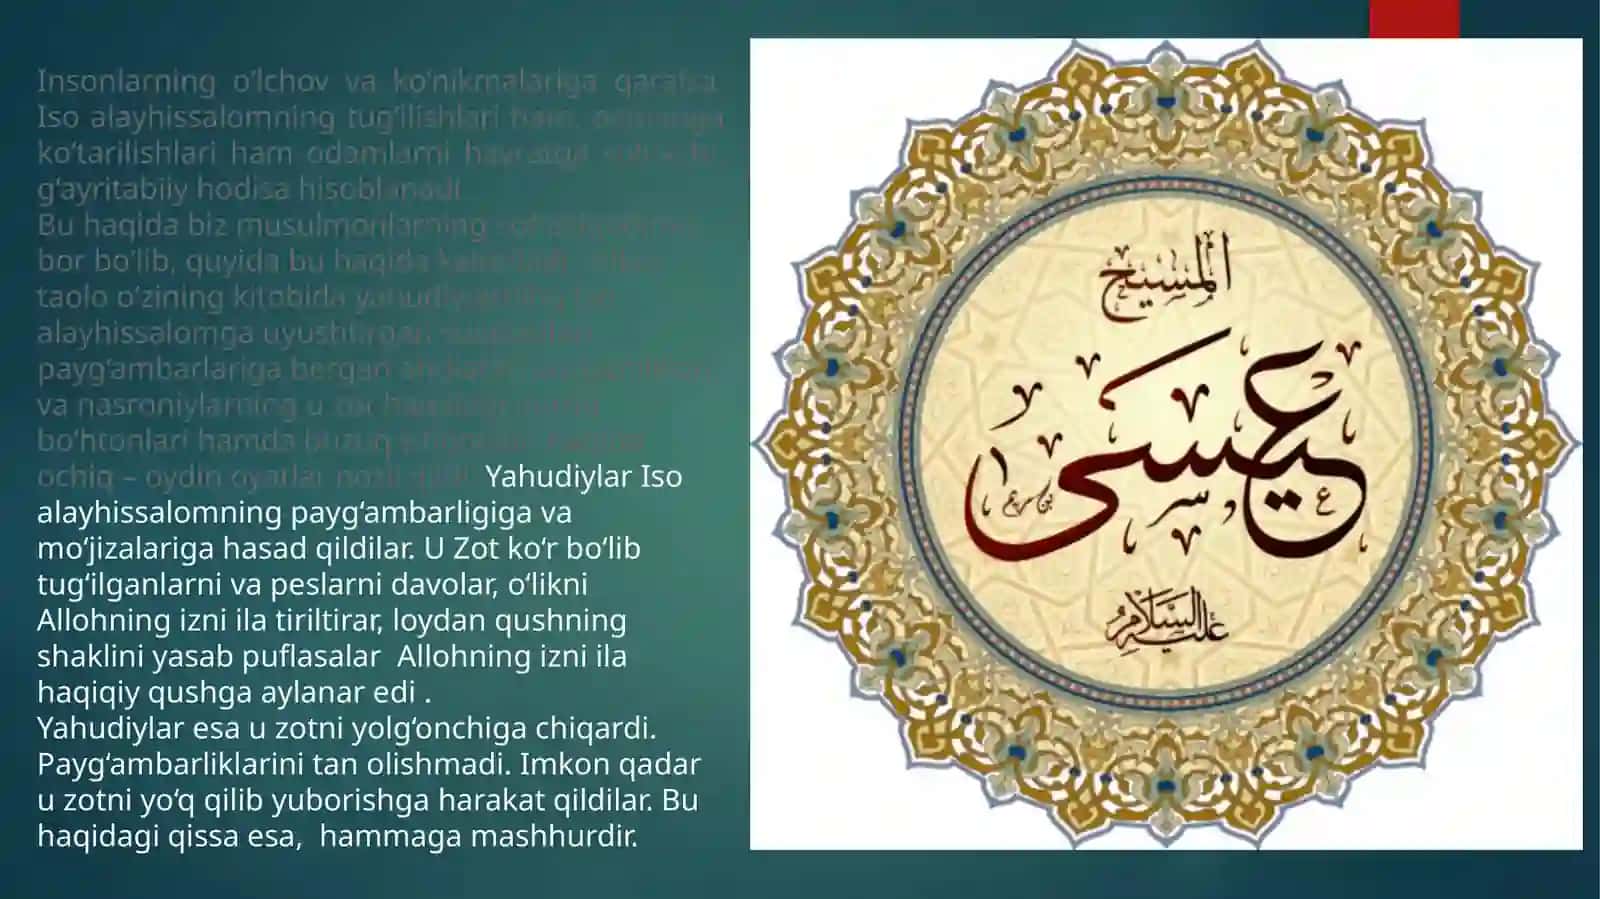 Insonlarning o‘lchov va ko‘nikmalariga qaralsa
Iso alayhissalomning tug‘ilishlari ham,
ko‘tarilishlari ham odamlarni hayratga
g‘ayritabiiy hodisa hisoblanadi.
Bu haqida biz musulmonlarning
bor bo‘lib, quyida bu haqida
taolo o‘zining kitobida yahudiylarning
alayhissalomga uyushtirgan
payg‘ambarlariga bergan
va nasroniylarning u zot haqidagi
bo‘htonlari hamda buzuq
ochiq – oydin oyatlar nozil qildi. Yahudiylar Iso
alayhissalomning payg‘ambarligiga va
mo‘jizalariga hasad qildilar. U Zot ko‘r bo‘lib
tug‘ilganlarni va peslarni davolar, o‘likni
Allohning izni ila tiriltirar, loydan qushning
shaklini yasab puflasalar Allohning izni ila
haqiqiy qushga aylanar edi .
Yahudiylar esa u zotni yolg‘onchiga chiqardi.
Payg‘ambarliklarini tan olishmadi. Imkon qadar
u zotni yo‘q qilib yuborishga harakat qildilar. Bu
haqidagi qissa esa, hammaga mashhurdir.
المسيح
عيسى
بن مريم
عليه السلام